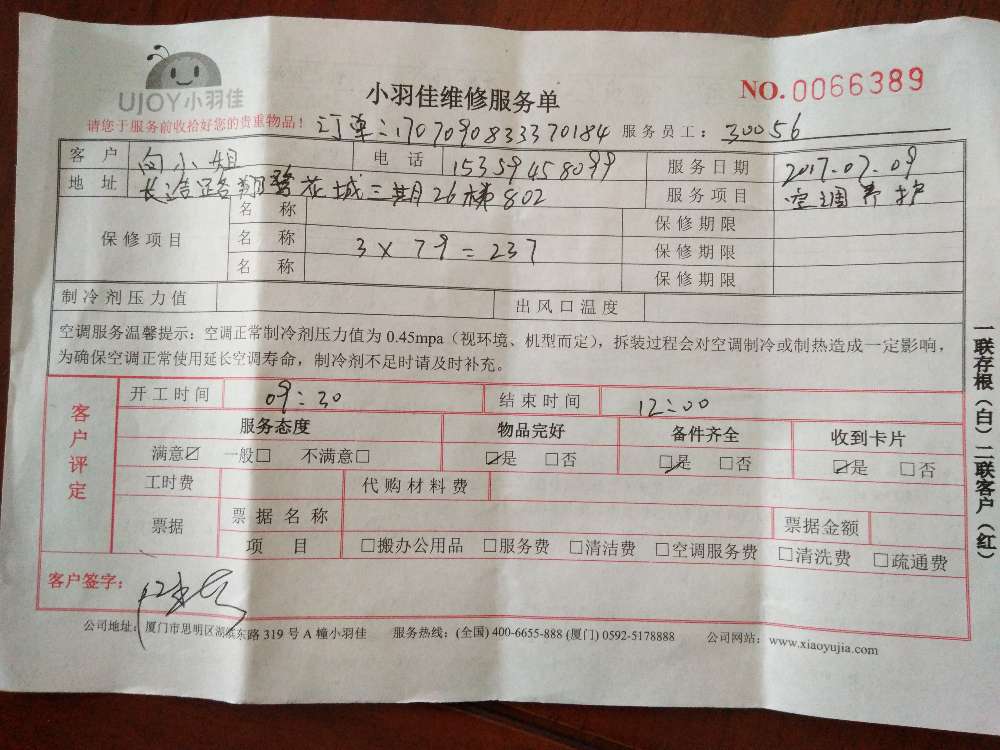 UJOY小羽佳
小羽佳维修服务单
NO.0066389
请您于服务前收拾好您的贵重物品！
订单:1707090833370184 服务员工：30056
客户 向小姐 电话 15359458099 服务日期 2017.07.09
地址 长浩路 花城三期26梯802 服务项目 空调养护
保修项目 名称 保修期限
名称 3×79=237 保修期限
名称 保修期限
制冷剂压力值 出风口温度
空调服务温馨提示：空调正常制冷剂压力值为 0.45mpa（视环境、机型而定），拆装过程会对空调制冷或制热造成一定影响，
为确保空调正常使用延长空调寿命，制冷剂不足时请及时补充。
客户评定
开工时间 09:30 结束时间 12:00
服务态度 物品完好 备件齐全 收到卡片
满意☑ 一般□ 不满意□ ☑是 □否 ☑是 □否 ☑是 □否
工时费 代购材料费
票据 票据名称 票据金额
项目 □搬办公用品 □服务费 □清洁费 □空调服务费 □清洗费 □疏通费
客户签字：
公司地址：厦门市思明区湖滨东路 319 号 A 幢小羽佳 服务热线：(全国) 400-6655-888 (厦门) 0592-5178888 公司网站：www.xiaoyujia.com
一联存根（白）二联客户（红）